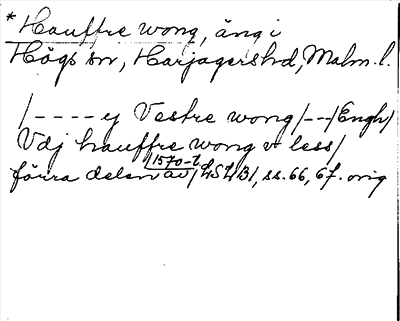 * Hauffre wong, äng i
Högs sn, Harjagers hd, Malm. l.
/---- ej Vestre wong/--/Engh/
Vdj hauffre wong v less/
förra delen av /1570-t/ LSLB1, ss. 66, 67. orig